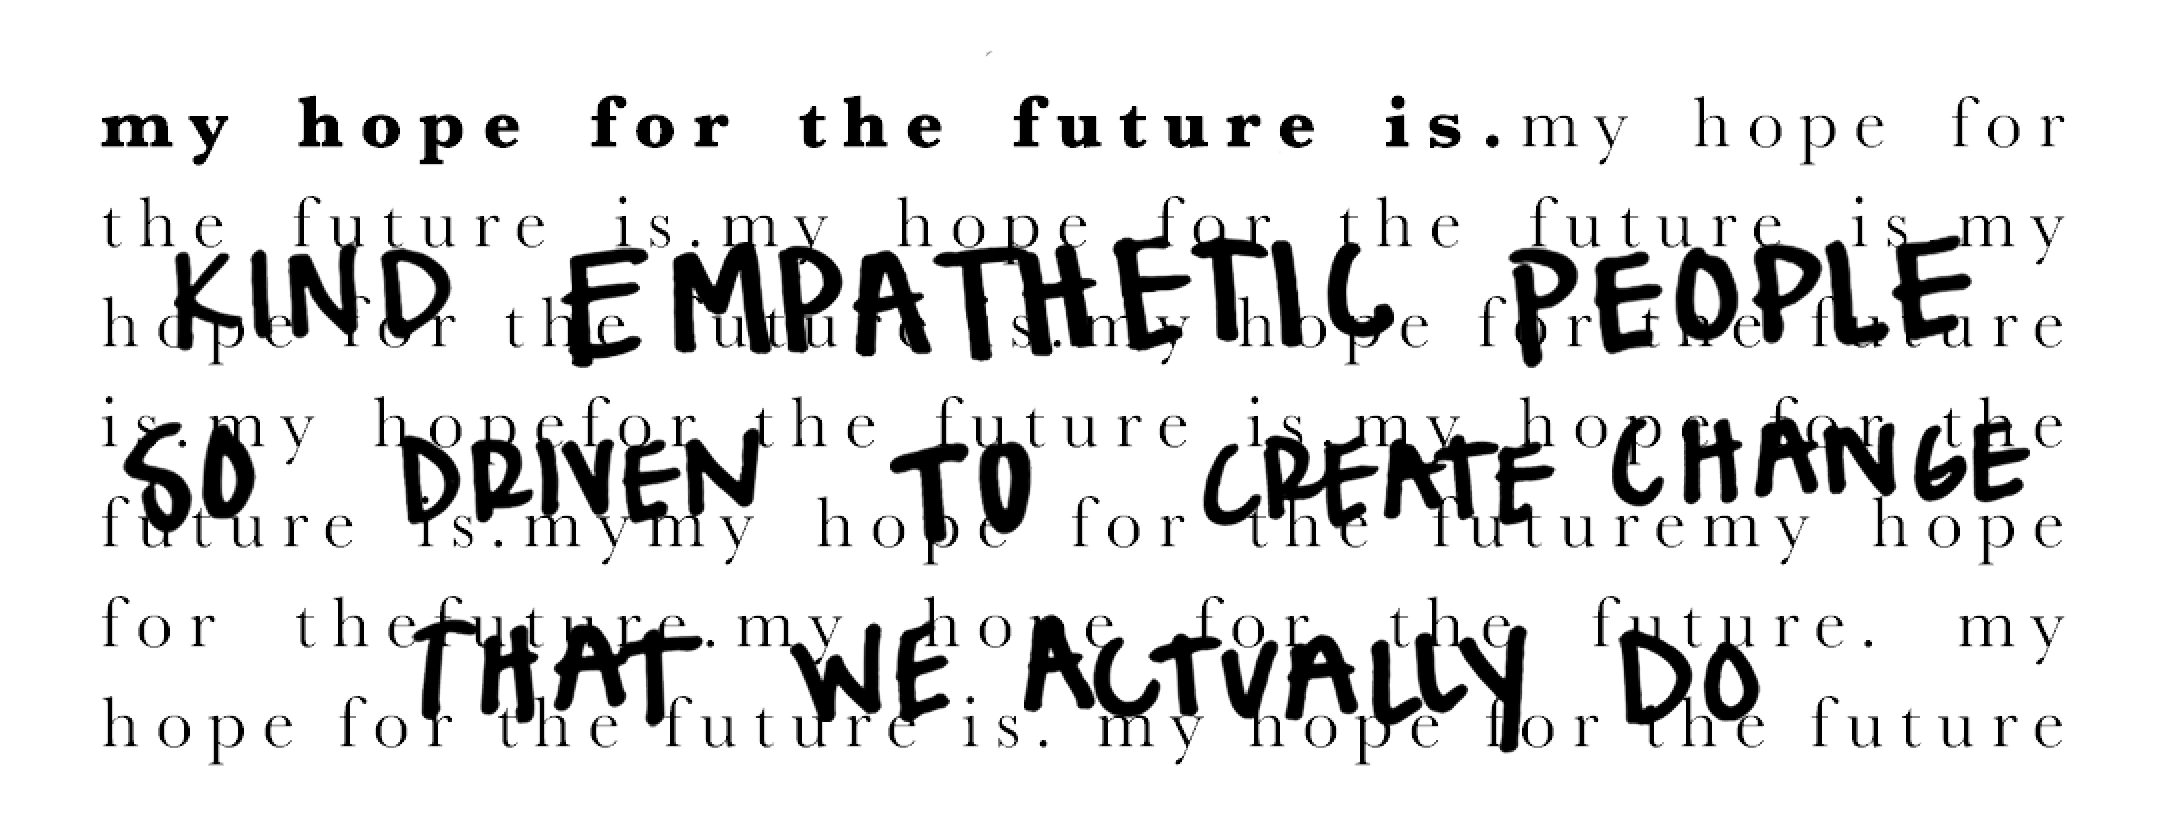 my hope for the future is.my hope for
the future is.my hope for the future is.my
KIND EMPATHETIC PEOPLE
hope for the future is.my hope for the future
is.my hopefor the future is.my hope for the
SO DRIVEN TO CREATE CHANGE
future is.mymy hope for the futuremy hope
for thefuture.my hope for the future. my
THAT WE ACTUALLY DO
hope for the future is. my hope for the future